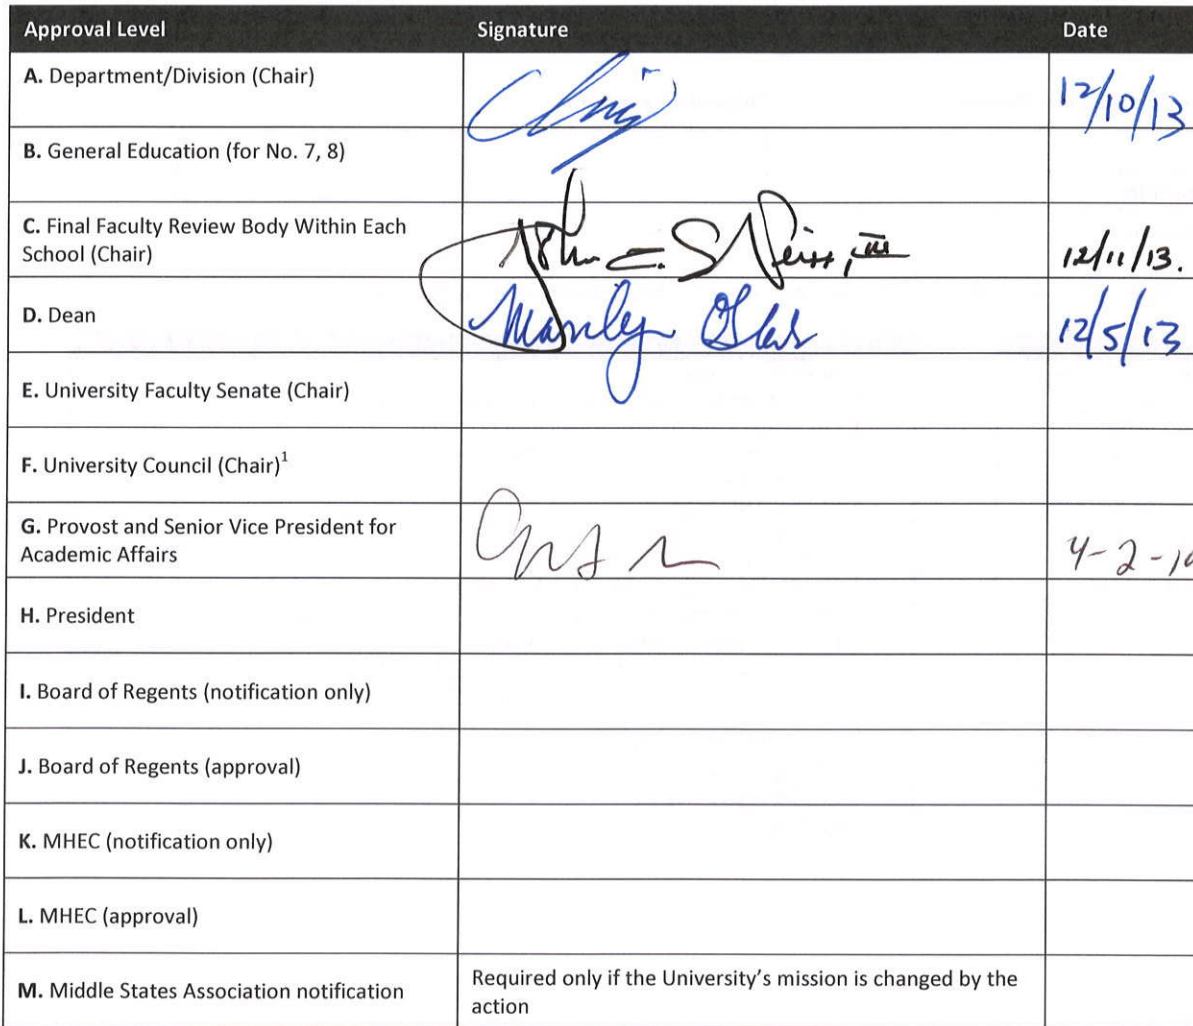 Approval Level Signature Date
A. Department/Division (Chair) 12/10/13
B. General Education (for No. 7, 8)
C. Final Faculty Review Body Within Each
School (Chair) John E. S 12/11/13.
D. Dean Marilyn 12/5/13
E. University Faculty Senate (Chair)
F. University Council (Chair)¹
G. Provost and Senior Vice President for
Academic Affairs 4-2-1
H. President
I. Board of Regents (notification only)
J. Board of Regents (approval)
K. MHEC (notification only)
L. MHEC (approval)
M. Middle States Association notification Required only if the University’s mission is changed by the
action